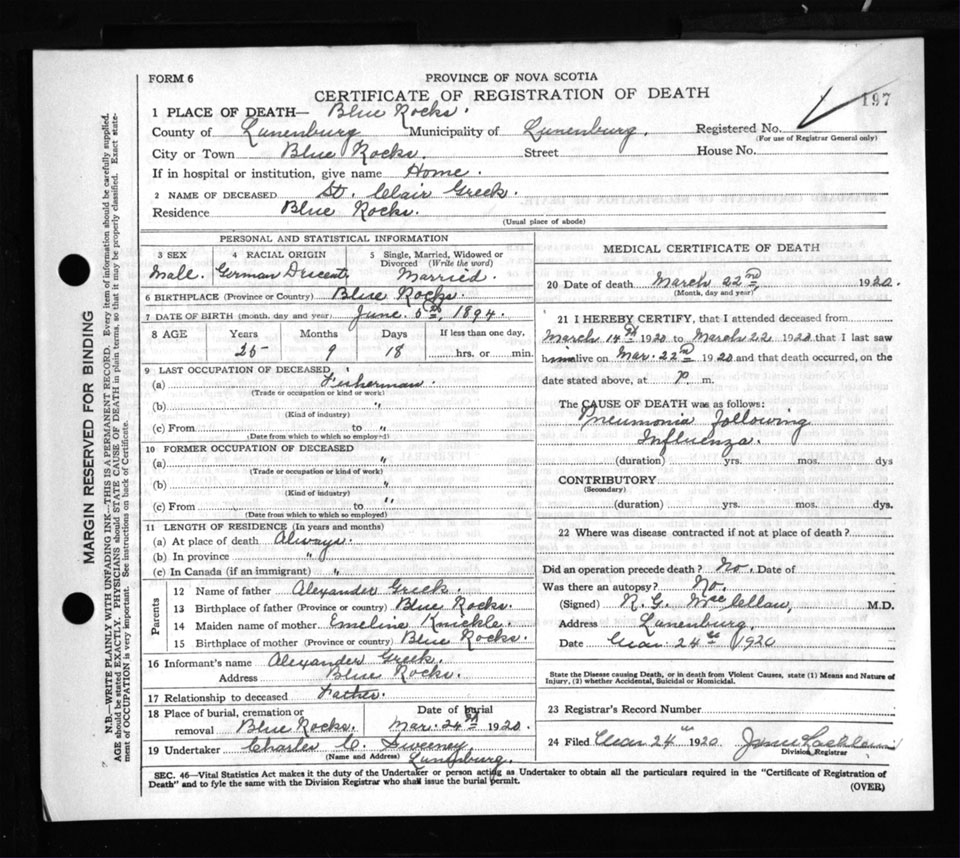 FORM 6
PROVINCE OF NOVA SCOTIA
CERTIFICATE OF REGISTRATION OF DEATH
197
1 PLACE OF DEATH— Blue Rocks.
County of Lunenburg Municipality of Lunenburg. Registered No.
(For use of Registrar General only)
City or Town Blue Rocks. Street House No.
If in hospital or institution, give name Home.
2 NAME OF DECEASED St. Clair Greek.
Residence Blue Rocks.
(Usual place of abode)
PERSONAL AND STATISTICAL INFORMATION
3 SEX 4 RACIAL ORIGIN 5 Single, Married, Widowed or Divorced (Write the word)
Male. German Descent. Married.
6 BIRTHPLACE (Province or Country) Blue Rocks.
7 DATE OF BIRTH (month, day and year) June 5th, 1894.
8 AGE Years Months Days If less than one day,
25 9 18 hrs. or min.
9 LAST OCCUPATION OF DECEASED
(a) Fisherman.
(Trade or occupation or kind of work)
(b) "
(Kind of industry)
(c) From to "
(Date from which to which so employed)
10 FORMER OCCUPATION OF DECEASED
(a) "
(Trade or occupation or kind of work)
(b) "
(Kind of industry)
(c) From to "
(Date from which to which so employed)
11 LENGTH OF RESIDENCE (In years and months)
(a) At place of death Always.
(b) In province "
(c) In Canada (if an immigrant) "
Parents
12 Name of father Alexander Greek.
13 Birthplace of father (Province or country) Blue Rocks.
14 Maiden name of mother Emeline Knickle.
15 Birthplace of mother (Province or country) Blue Rocks.
16 Informant's name Alexander Greek.
Address Blue Rocks.
17 Relationship to deceased Father.
18 Place of burial, cremation or removal Blue Rocks. Date of burial Mar. 24th 1920.
19 Undertaker Charles C. Sweeney,
(Name and Address) Lunenburg.
MEDICAL CERTIFICATE OF DEATH
20 Date of death March 22nd, 1920.
(Month, day and year)
21 I HEREBY CERTIFY, that I attended deceased from
March 14th 1920 to March 22 1920 that I last saw
him alive on Mar. 22nd 1920 and that death occurred, on the
date stated above, at P. m.
The CAUSE OF DEATH was as follows:
Pneumonia following
Influenza.
(duration) yrs. mos. dys
CONTRIBUTORY
(Secondary)
(duration) yrs. mos. dys.
22 Where was disease contracted if not at place of death?
Did an operation precede death? No. Date of
Was there an autopsy? No.
(Signed) R. G. MacLellan, M.D.
Address Lunenburg.
Date Mar. 24th 1920
State the Disease causing Death, or in death from Violent Causes, state (1) Means and Nature of
Injury, (2) whether Accidental, Suicidal or Homicidal.
23 Registrar's Record Number
24 Filed Mar 24th 1920
Division Registrar
SEC. 46—Vital Statistics Act makes it the duty of the Undertaker or person acting as Undertaker to obtain all the particulars required in the "Certificate of Registration of
Death" and to fyle the same with the Division Registrar who shall issue the burial permit.
(OVER)
MARGIN RESERVED FOR BINDING
N.B.—WRITE PLAINLY WITH UNFADING INK—THIS IS A PERMANENT RECORD. Every item of information should be carefully supplied.
AGE should be stated EXACTLY. PHYSICIANS should STATE CAUSE OF DEATH in plain terms, so that it may be properly classified. Exact statement of OCCUPATION is very important. See instructions on back of Certificate.